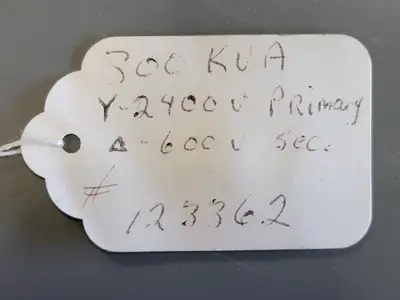 300 KVA
Y-2400V PRimary
Δ-600V Sec.
#
123362